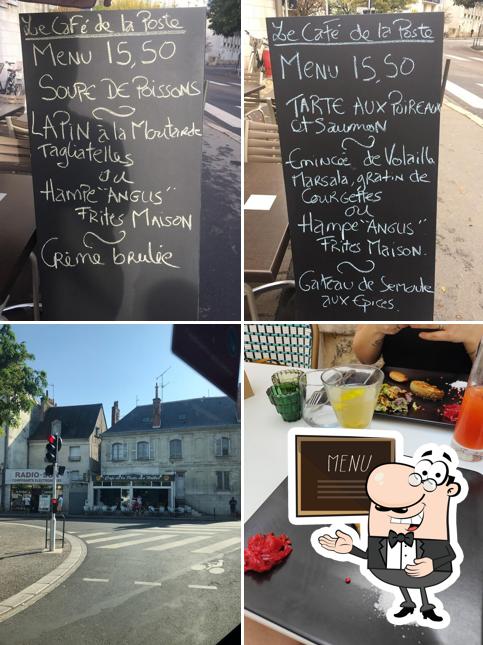 Le Café de la Poste
MENU 15,50
SOUPE DE POISSONS
LAPIN à la Moutarde
Tagliatelles
ou
HAMPE "ANGUS"
FRITES MAISON
Crème brulée
Le Café de la Poste
MENU 15,50
TARTE AUX POIREAUX
et Saumon
Emincée de Volaille
Marsala, gratin de
Courgettes
ou
HAMPE "ANGUS"
FRITES MAISON.
Gateau de Semoule
aux Epices.
RADIO-
COMPOSANTS ELECTRONIQUES
MENU